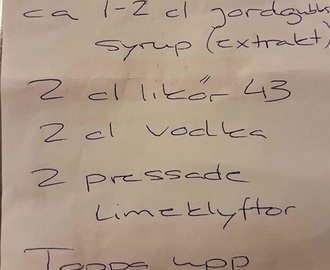 ca 1-2 cl jordgubbs
syrup (extrakt)
2 cl likör 43
2 cl vodka
2 pressade
limeklyftor
Toppa upp